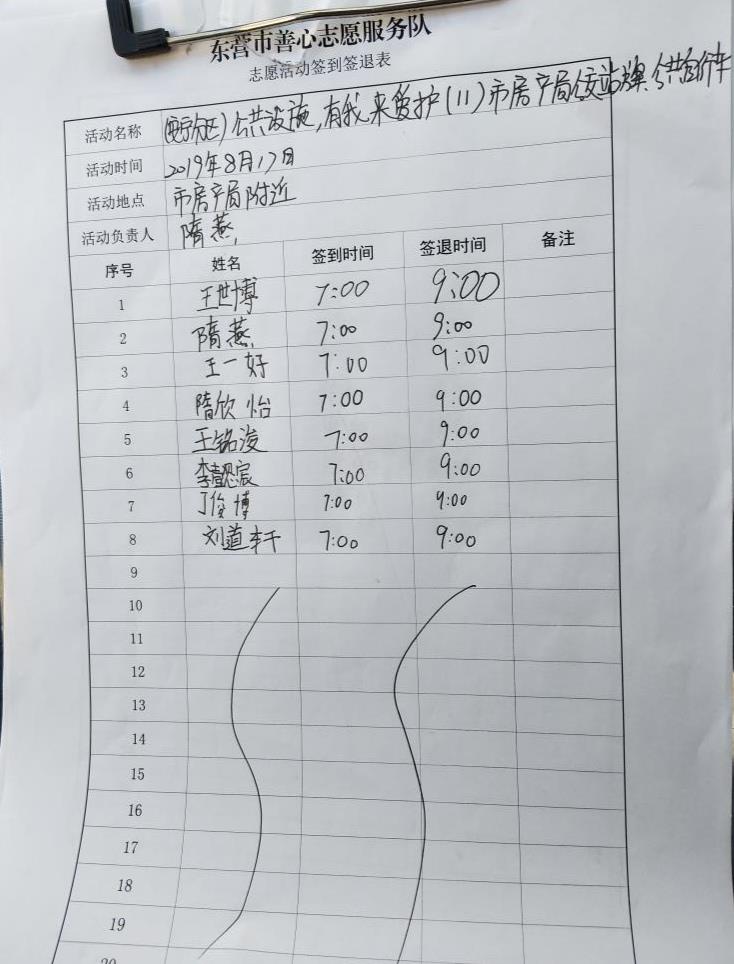 东营市善心志愿服务队
志愿活动签到签退表
活动名称 公共设施,有我来爱护(11)市房产局
活动时间 2019年8月17日
活动地点 市房产局附近
活动负责人 隋燕
序号 姓名 签到时间 签退时间 备注
1 王世博 7:00 9:00
2 隋燕 7:00 9:00
3 王一好 7:00 9:00
4 隋欣怡 7:00 9:00
5 王铭浚 7:00 9:00
6 7:00 9:00
7 丁俊博 7:00 9:00
8 刘道 7:00 9:00
9
10
11
12
13
14
15
16
17
18
19
20